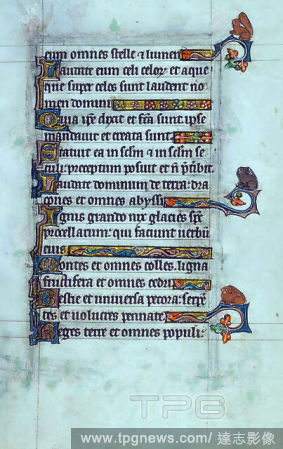 eum omnes stelle & lumen
Laudate eum celi celoꝝ et aque
que super celos sunt laudent no
men domini
Quia ip̄e dixit et fc̄a sunt ipse
mandauit et creata sunt
Statuit ea in sc̄lm & in sc̄lm se
culi: preceptum posuit et n̄ p̄teribit
Laudate dominum de terra: dra
cones et omnes abyssi
Ignis grando nix glacies sp̄c
procellarum: qui faciunt uerbū
eius
Montes et omnes colles. ligna
fructifera et omnes cedri
Bestie et uniuersa pecora: serpē
tes et uolucres pennate
Reges terre et omnes populi:
TPG
www.tpgnews.com/ 達志影像